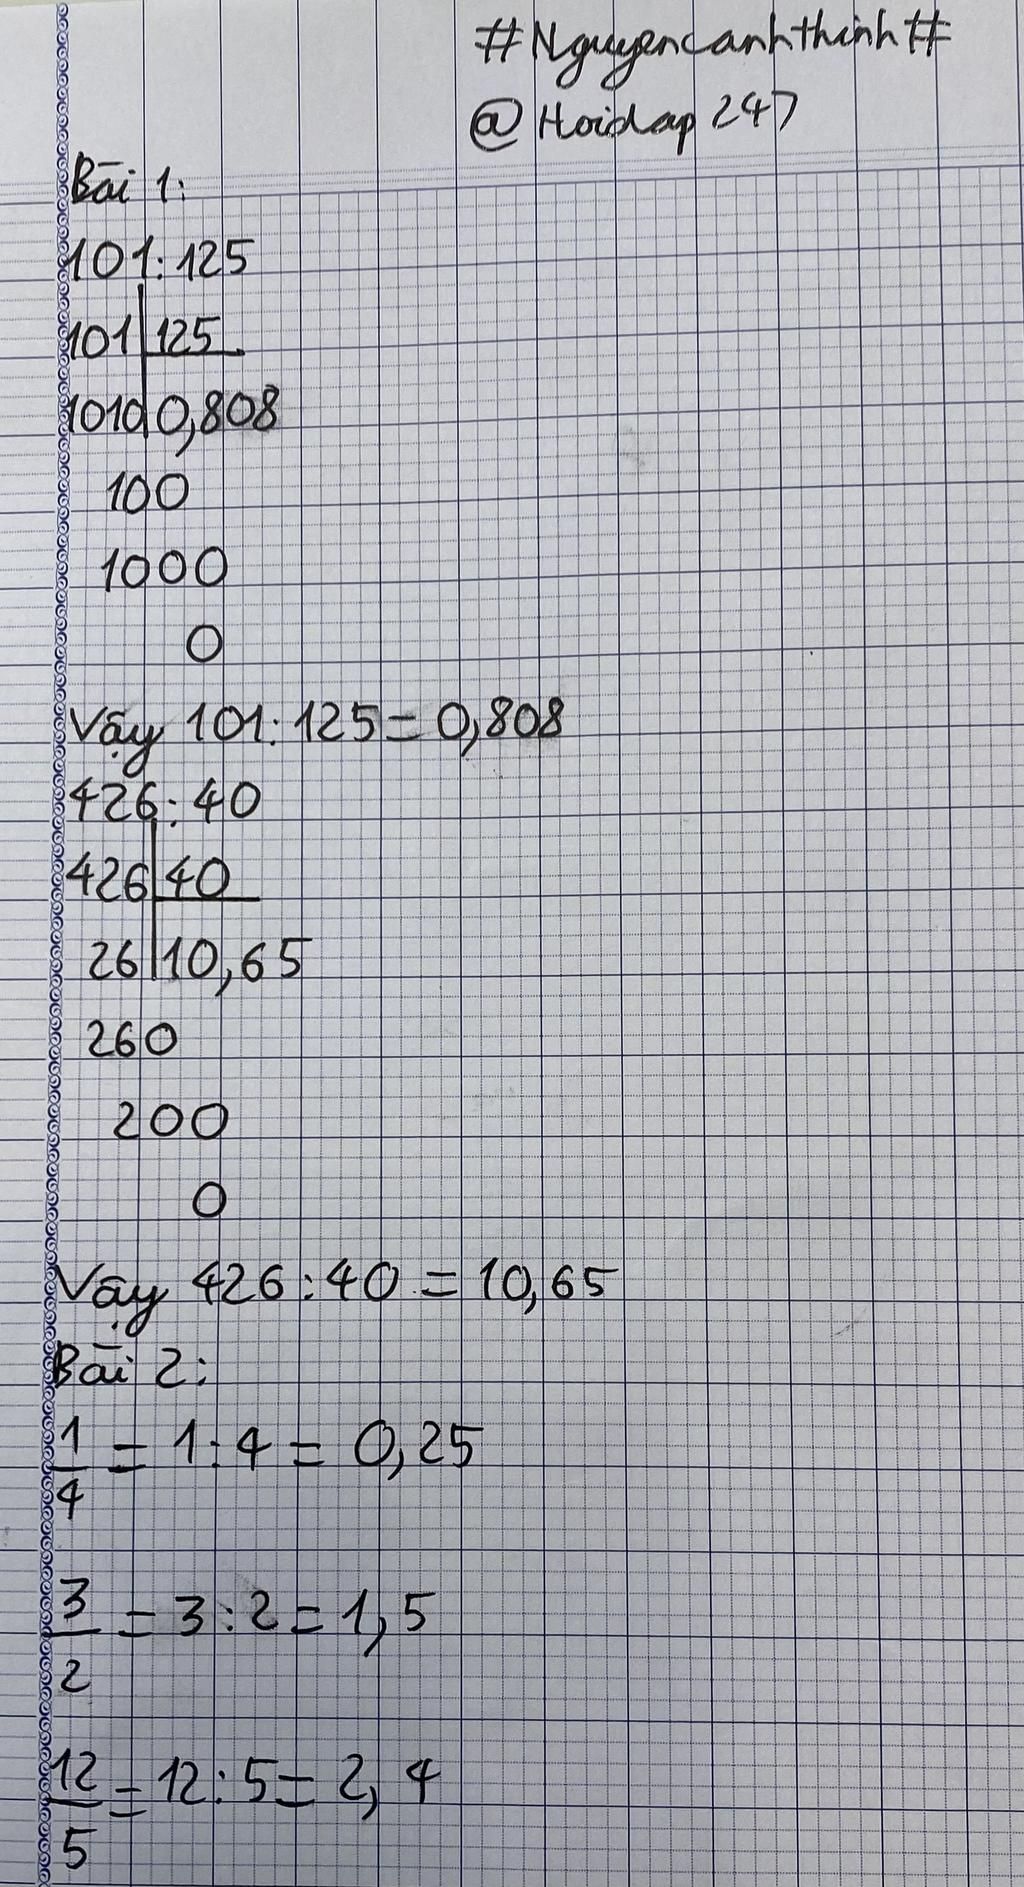 #Nguyencanhthinh#
@Hoidap247
Bài 1:
101:125
101|125
1010|0,808
100
1000
0
Vậy 101:125=0,808
426:40
426|40
26|10,65
260
200
0
Vậy 426:40=10,65
Bài 2:
1/4 = 1:4 = 0,25
3/2 = 3:2 = 1,5
12/5 = 12:5 = 2,4